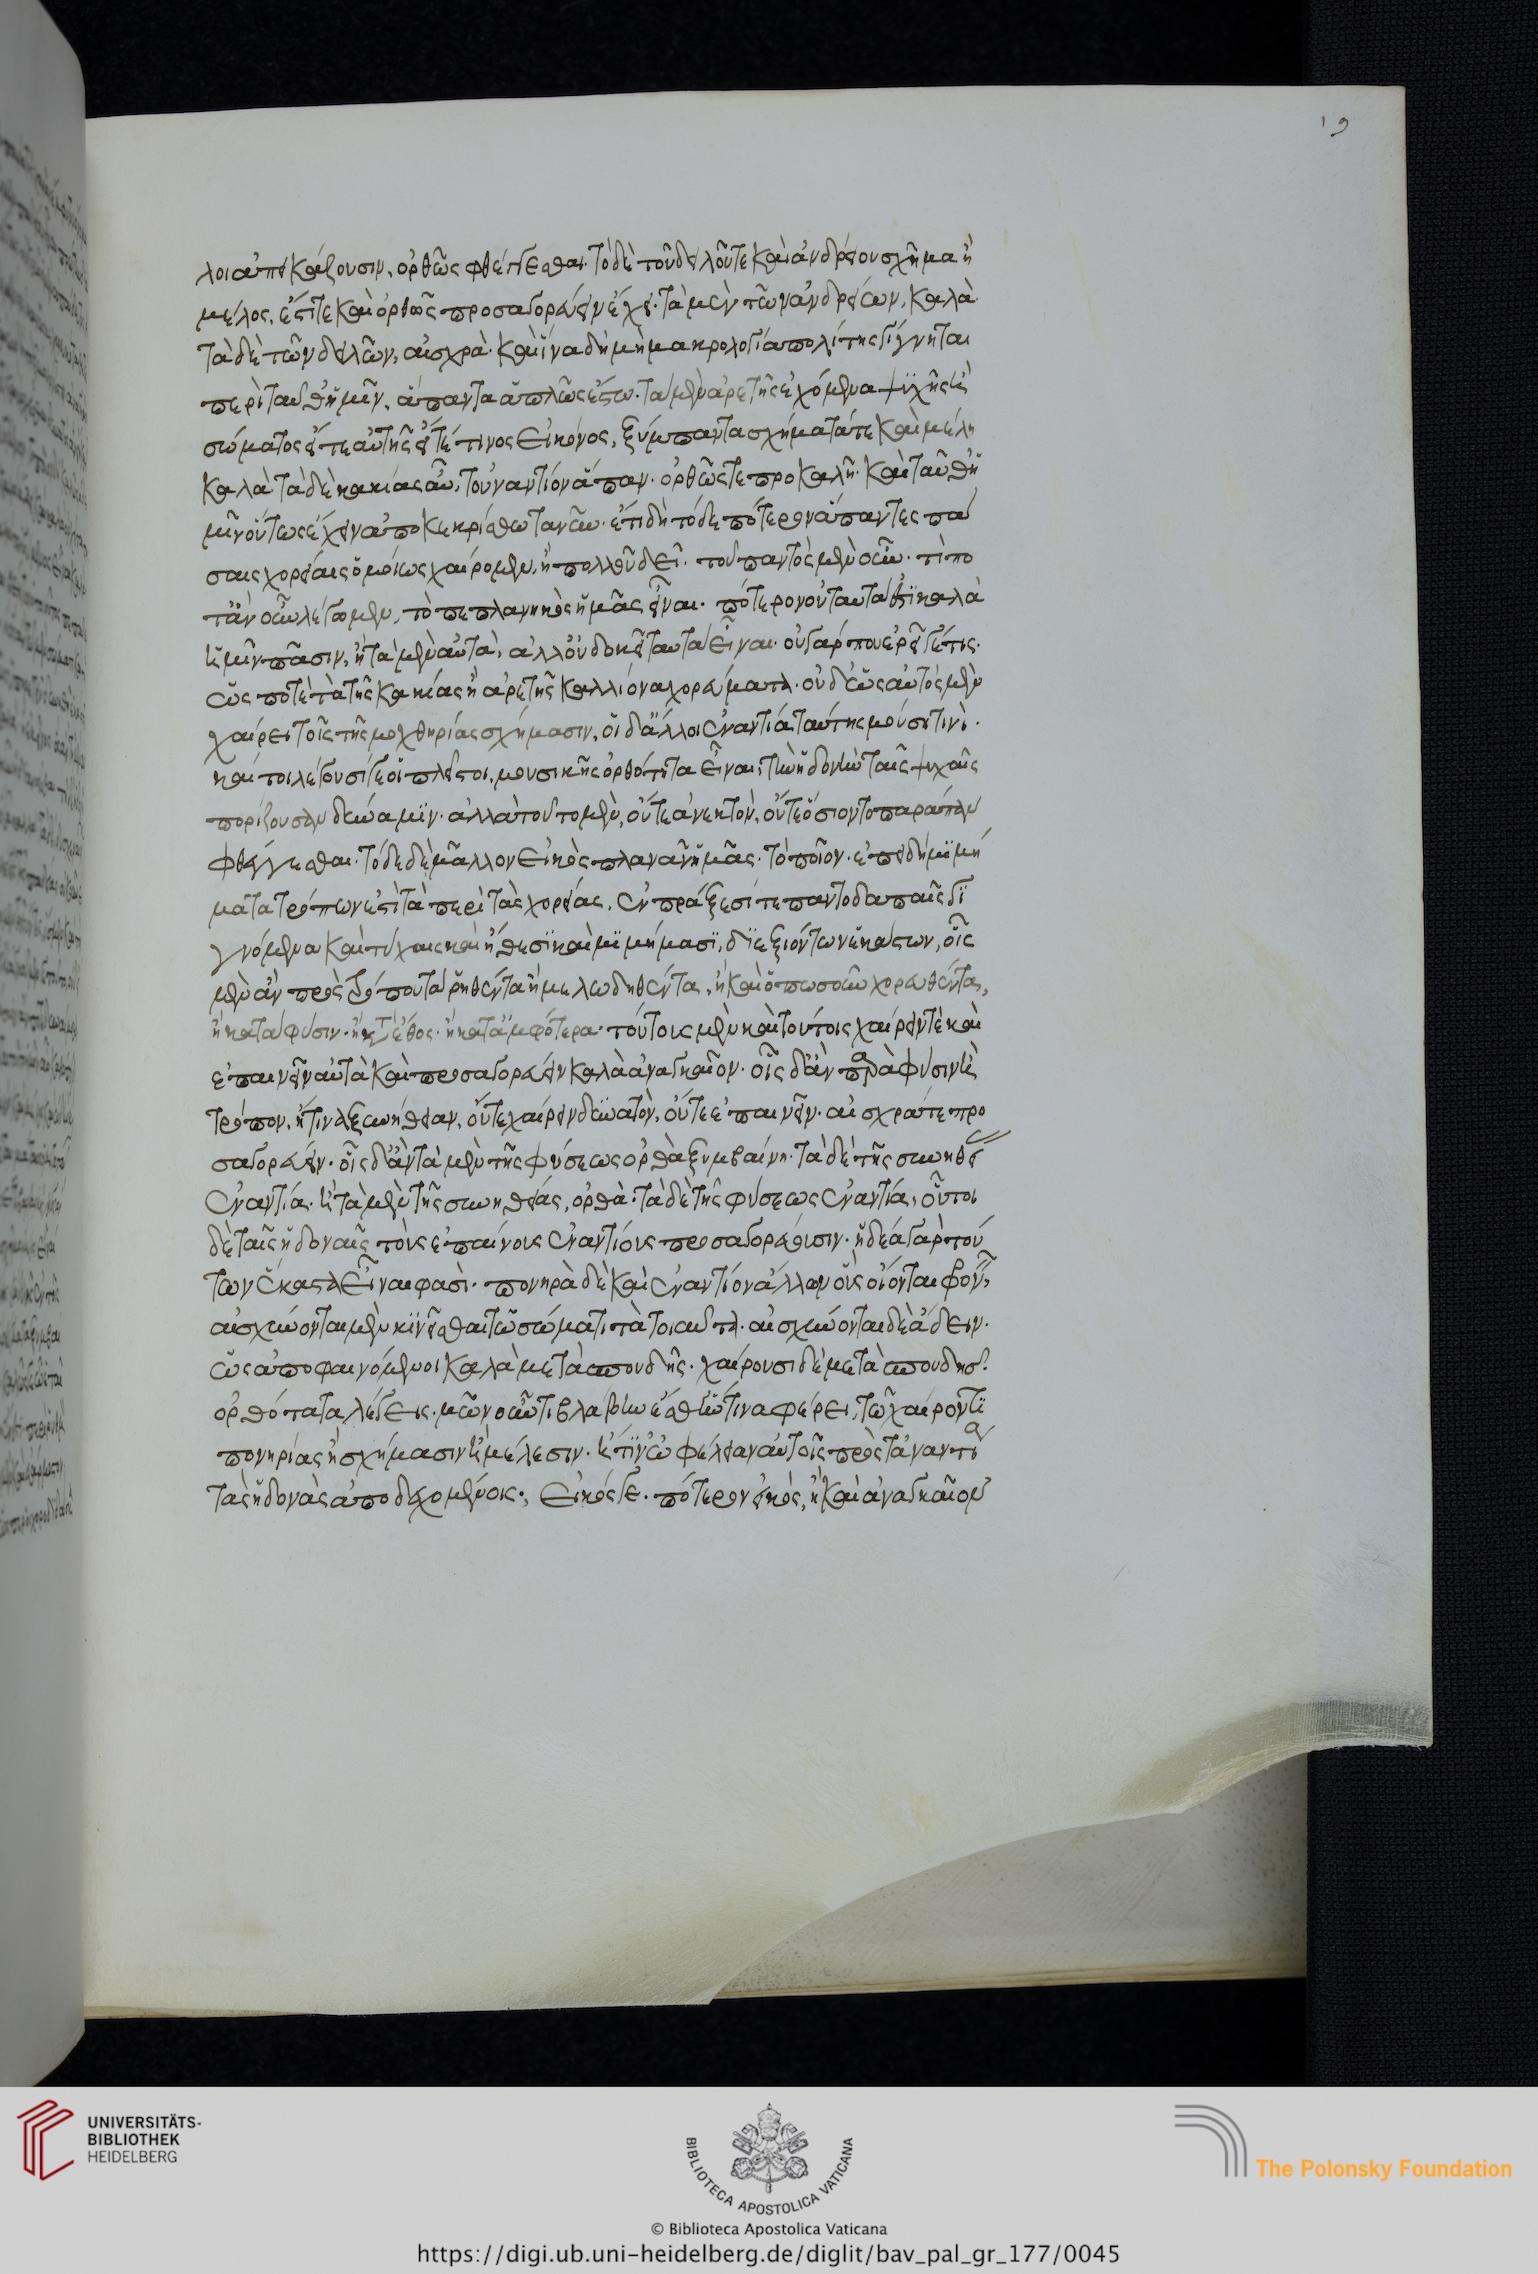 19
λοι ἀπεικάζουσιν, ὀρθῶς φθέγγεσθαι. τὸ δὲ τοῦ δειλοῦ τε καὶ ἀνδρείου σχῆμα ἢ
μέλος, ἔστι τε καὶ ὀρθῶς προσαγορεύειν ἔχει. τὰ μὲν τῶν ἀνδρείων, καλὰ
τὰ δὲ τῶν δειλῶν, αἰσχρὰ. καὶ ἵνα δὴ μὴ μακρολογία πολίτης γίγνηται
περὶ ταῦθ ἡμῖν, ἅπαντα ἁπλῶς ἔστω. τὰ μὲν ἀρετῆς ἐχόμενα ψυχῆς ἢ
σώματος εἴτε αὐτῆς εἴτέ τινος εἰκόνος, ξύμπαντα σχήματά τε καὶ μέλη
καλὰ. τὰ δὲ κακίας αὖ, τοὐναντίον ἅπαν. ὀρθῶς τε προκαλῆ. καὶ ταῦθ ἡ
μῖν οὕτως ἔχειν ἀποκεκρίσθω τανῦν. ἔτι δὴ τόδε πότερον ἅπαντες πά
σαις χορείαις ὁμοίως χαίρομεν, ἢ πολλοῦ δεῖ. τοῦ παντὸς μὲν οὖν. τί πο
τ ἂν οὖν λέγομεν, τὸ πεπλανηκὸς ἡμᾶς εἶναι. πότερον οὐ ταυτά ἐστι καλὰ
ἡμῖν πᾶσιν, ἢ τὰ μὲν αὐτὰ, ἀλλ οὐ δοκεῖ ταυτὰ εἶναι. οὐ γάρ που ἐρεῖ γέ τις.
ὥς ποτε τὰ τῆς κακίας ἢ ἀρετῆς καλλίονα χορεύματα. οὐδ ὡς αὐτὸς μὲν
χαίρει τοῖς τῆς μοχθηρίας σχήμασιν, οἱ δ ἄλλοι ἐναντία ταύτης μούσῃ τινὶ.
καί τοι λέγουσί γε οἱ πλεῖστοι, μουσικῆς ὀρθότητα εἶναι, τὴν ἡδονὴν ταῖς ψυχαῖς
πορίζουσαν δύναμιν. ἀλλὰ τοῦτο μὲν, οὔτε ἀνεκτὸν, οὔτε ὅσιον τοπαράπαν
φθέγγεσθαι. τόδε δὲ μᾶλλον εἰκὸς πλανᾶν ἡμᾶς. τὸ ποῖον. ἐπειδὴ μιμή
ματα τρόπων ἐστὶ τὰ περὶ τὰς χορείας, ἐν πράξεσί τε παντοδαπαῖς γι
γνόμενα καὶ τύχαις καὶ ἤθεσι καὶ μιμήμασι, διεξιόντων ἑκάστων, οἷς
μὲν ἂν πρὸς τρόπου τὰ ῥηθέντα ἢ μελωδηθέντα, ἢ καὶ ὁπωσοῦν χορευθέντα,
ἢ κατὰ φύσιν. ἢ κατ ἔθος. ἢ κατ ἀμφότερα. τούτους μὲν καὶ τούτοις χαίρειν τὲ καὶ
ἐπαινεῖν αὐτὰ καὶ προσαγορεύειν καλὰ ἀναγκαῖον. οἷς δ ἂν παρὰ φύσιν ἢ
τρόπον, ἤ τινα ξυνήθειαν, οὔτε χαίρειν δυνατὸν, οὔτε ἐπαινεῖν. αἰσχρά τε προ
σαγορεύειν. οἷς δ ἂν τὰ μὲν τῆς φύσεως ὀρθὰ ξυμβαίνη. τὰ δὲ τῆς συνηθεί
ἐναντία. ἢ τὰ μὲν τῆς συνηθείας, ὀρθὰ. τὰ δὲ τῆς φύσεως ἐναντία, οὗτοι
δὲ ταῖς ἡδοναῖς τοὺς ἐπαίνους ἐναντίους προσαγορεύουσιν. ἡδέα γὰρ τού
των ἕκαστα εἶναι φασὶ. πονηρὰ δὲ καὶ ἐναντίον ἄλλων οὓς οἴονται φρονεῖν,
αἰσχύνονται μὲν κινεῖσθαι τῶ σώματι τὰ τοιαῦτα. αἰσχύνονται δὲ ἄδειν.
ὡς ἀποφαινόμενοι καλὰ μετὰ σπουδῆς. χαίρουσι δὲ μετὰ σπουδῆς.
ὀρθότατα λέγεις. μῶν οὖν τι βλάβην ἔσθ ἥντινα φέρει, τῶ χαίροντι
πονηρίας ἢ σχήμασιν ἢ μέλεσιν. ἤ τιν ὠφέλειαν αὐτοῖς πρὸς τἀναντία
τὰς ἡδονὰς ἀποδεχομένοις. εἰκός γε. πότερον εἰκὸς, ἢ καὶ ἀναγκαῖον
UNIVERSITÄTS-
BIBLIOTHEK
HEIDELBERG
BIBLIOTECA APOSTOLICA VATICANA
The Polonsky Foundation
© Biblioteca Apostolica Vaticana
https://digi.ub.uni-heidelberg.de/diglit/bav_pal_gr_177/0045